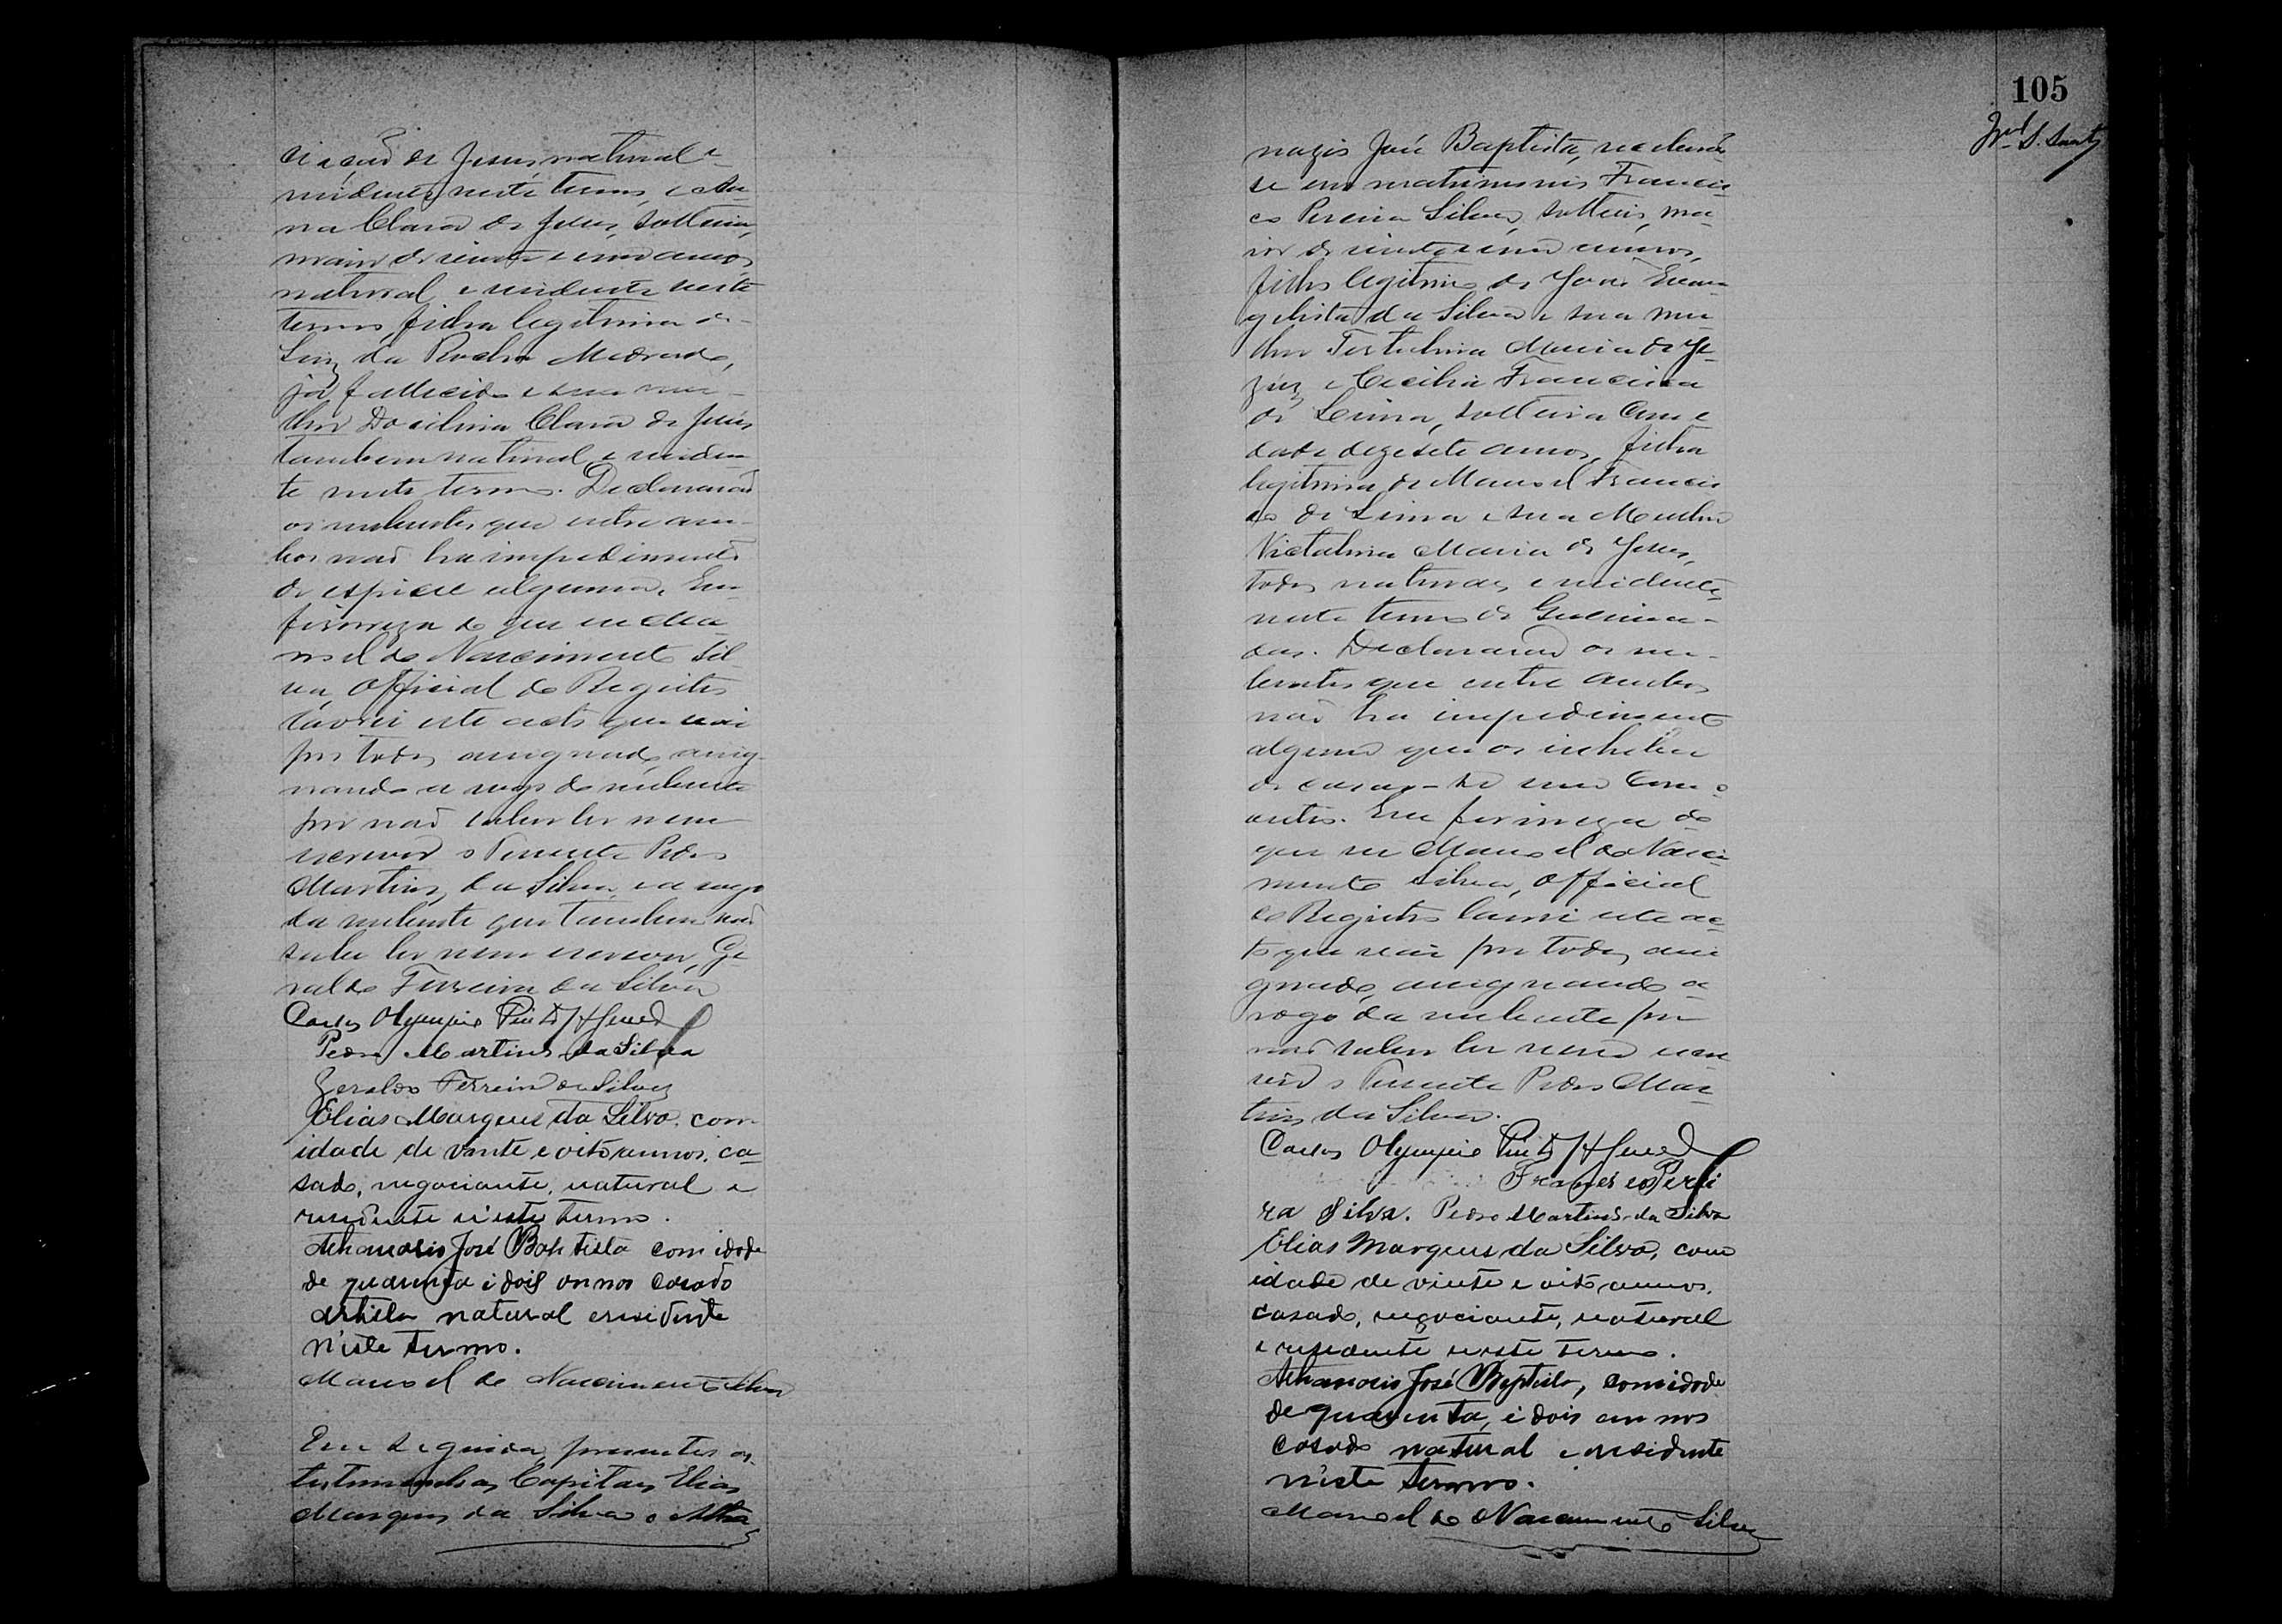 ciação de Jesus, natural e
residente neste termo, e An-
na Clara de Jesus, solteira,
maior de vinte e um annos,
natural e residente neste
termo, filha legitima de
Luiz da Rocha Medrado,
já fallecido e sua mu-
lher Docilina Clara de Jesus
tambem natural e residen-
te neste termo. Declararão
os nubentes que entre am-
bos não ha impedimento
de especie alguma. Em
firmeza do que eu Ma-
noel do Nascimento Sil-
va, Official do Registro
lavrei este acto que vai
por todos assignado, assig-
nando a rogo do nubente
por não saber ler nem
escrever o Tenente Pedro
Martins da Silva, e a rogo
da nubente que tambem não
sabe ler nem escrever, Ge-
raldo Ferreira da Silva
Carlos Olympio Pinto
Pedro Martins da Silva
Geraldo Ferreira da Silva
Elias Marques da Silva, com
idade de vinte e oito annos, ca-
sado, negociante, natural e
residente n'este termo.
Athanasio José Baptista com idade
de quarenta i dois annos casado
artista natural e residente
n'iste termo.
Manoel do Nascimento Silva
Em seguida, presentes as
testemunhas Capitão Elias
Marques da Silva e Atha-
105
nazio José Baptista, receberão
se em matrimonio Francis-
co Pereira Silva, solteiro, ma-
ior de vinte e um annos,
filho legitimo de João Evan-
gelista da Silva e sua mu-
lher Tertulina Maria de Je-
zus, e Cecilia Francisca
de Lima, solteira com e
dade dezesete annos, filha
legitima de Manoel Francis-
co de Lima e sua Mulher
Victalina Maria de Jesus,
todos naturaes e residentes
neste termo de Queima-
das. Declararão os nu-
bentes que entre ambos
não ha impedimento
algum que os inhiba
de casar-se um com o
outro. Em firmeza do
que eu Manoel do Nasci-
mento Silva, Official
do Registro lavrei este ac-
to que vai por todos assi
gnado, assignando a
rogo da nubente por
não saber ler nem escre
ver o Tenente Pedro Mar-
tins da Silva.
Carlos Olympio Pinto
Francisco Perei
ra Silva. Pedro Martins da Silva
Elias Marques da Silva, com
idade de vinte e oito annos,
casado, negociante, natural
e residente neste termo.
Athanasio José Baptista, com idade
de quarenta, i dois annos
casado natural e residente
n'iste termo.
Manoel do Nascimento Silva